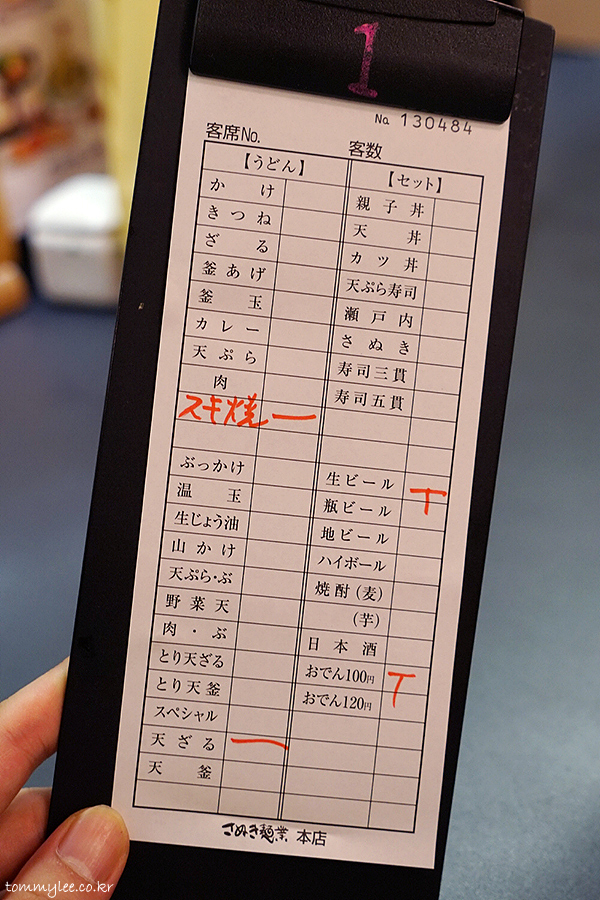 1
№ 130484
客席No.
客数
【うどん】
かけ
きつね
ざる
釜あげ
釜玉
カレー
天ぷら
肉
スキ焼 一
ぶっかけ
温玉
生じょう油
山かけ
天ぷら・ぶ
野菜天
肉・ぶ
とり天ざる
とり天釜
スペシャル
天ざる 一
天釜
【セット】
親子丼
天丼
カツ丼
天ぷら寿司
瀬戸内
さぬき
寿司三貫
寿司五貫
生ビール T
瓶ビール
地ビール
ハイボール
焼酎(麦)
(芋)
日本酒
おでん100円 T
おでん120円
さぬき麺業 本店
tommylee.co.kr